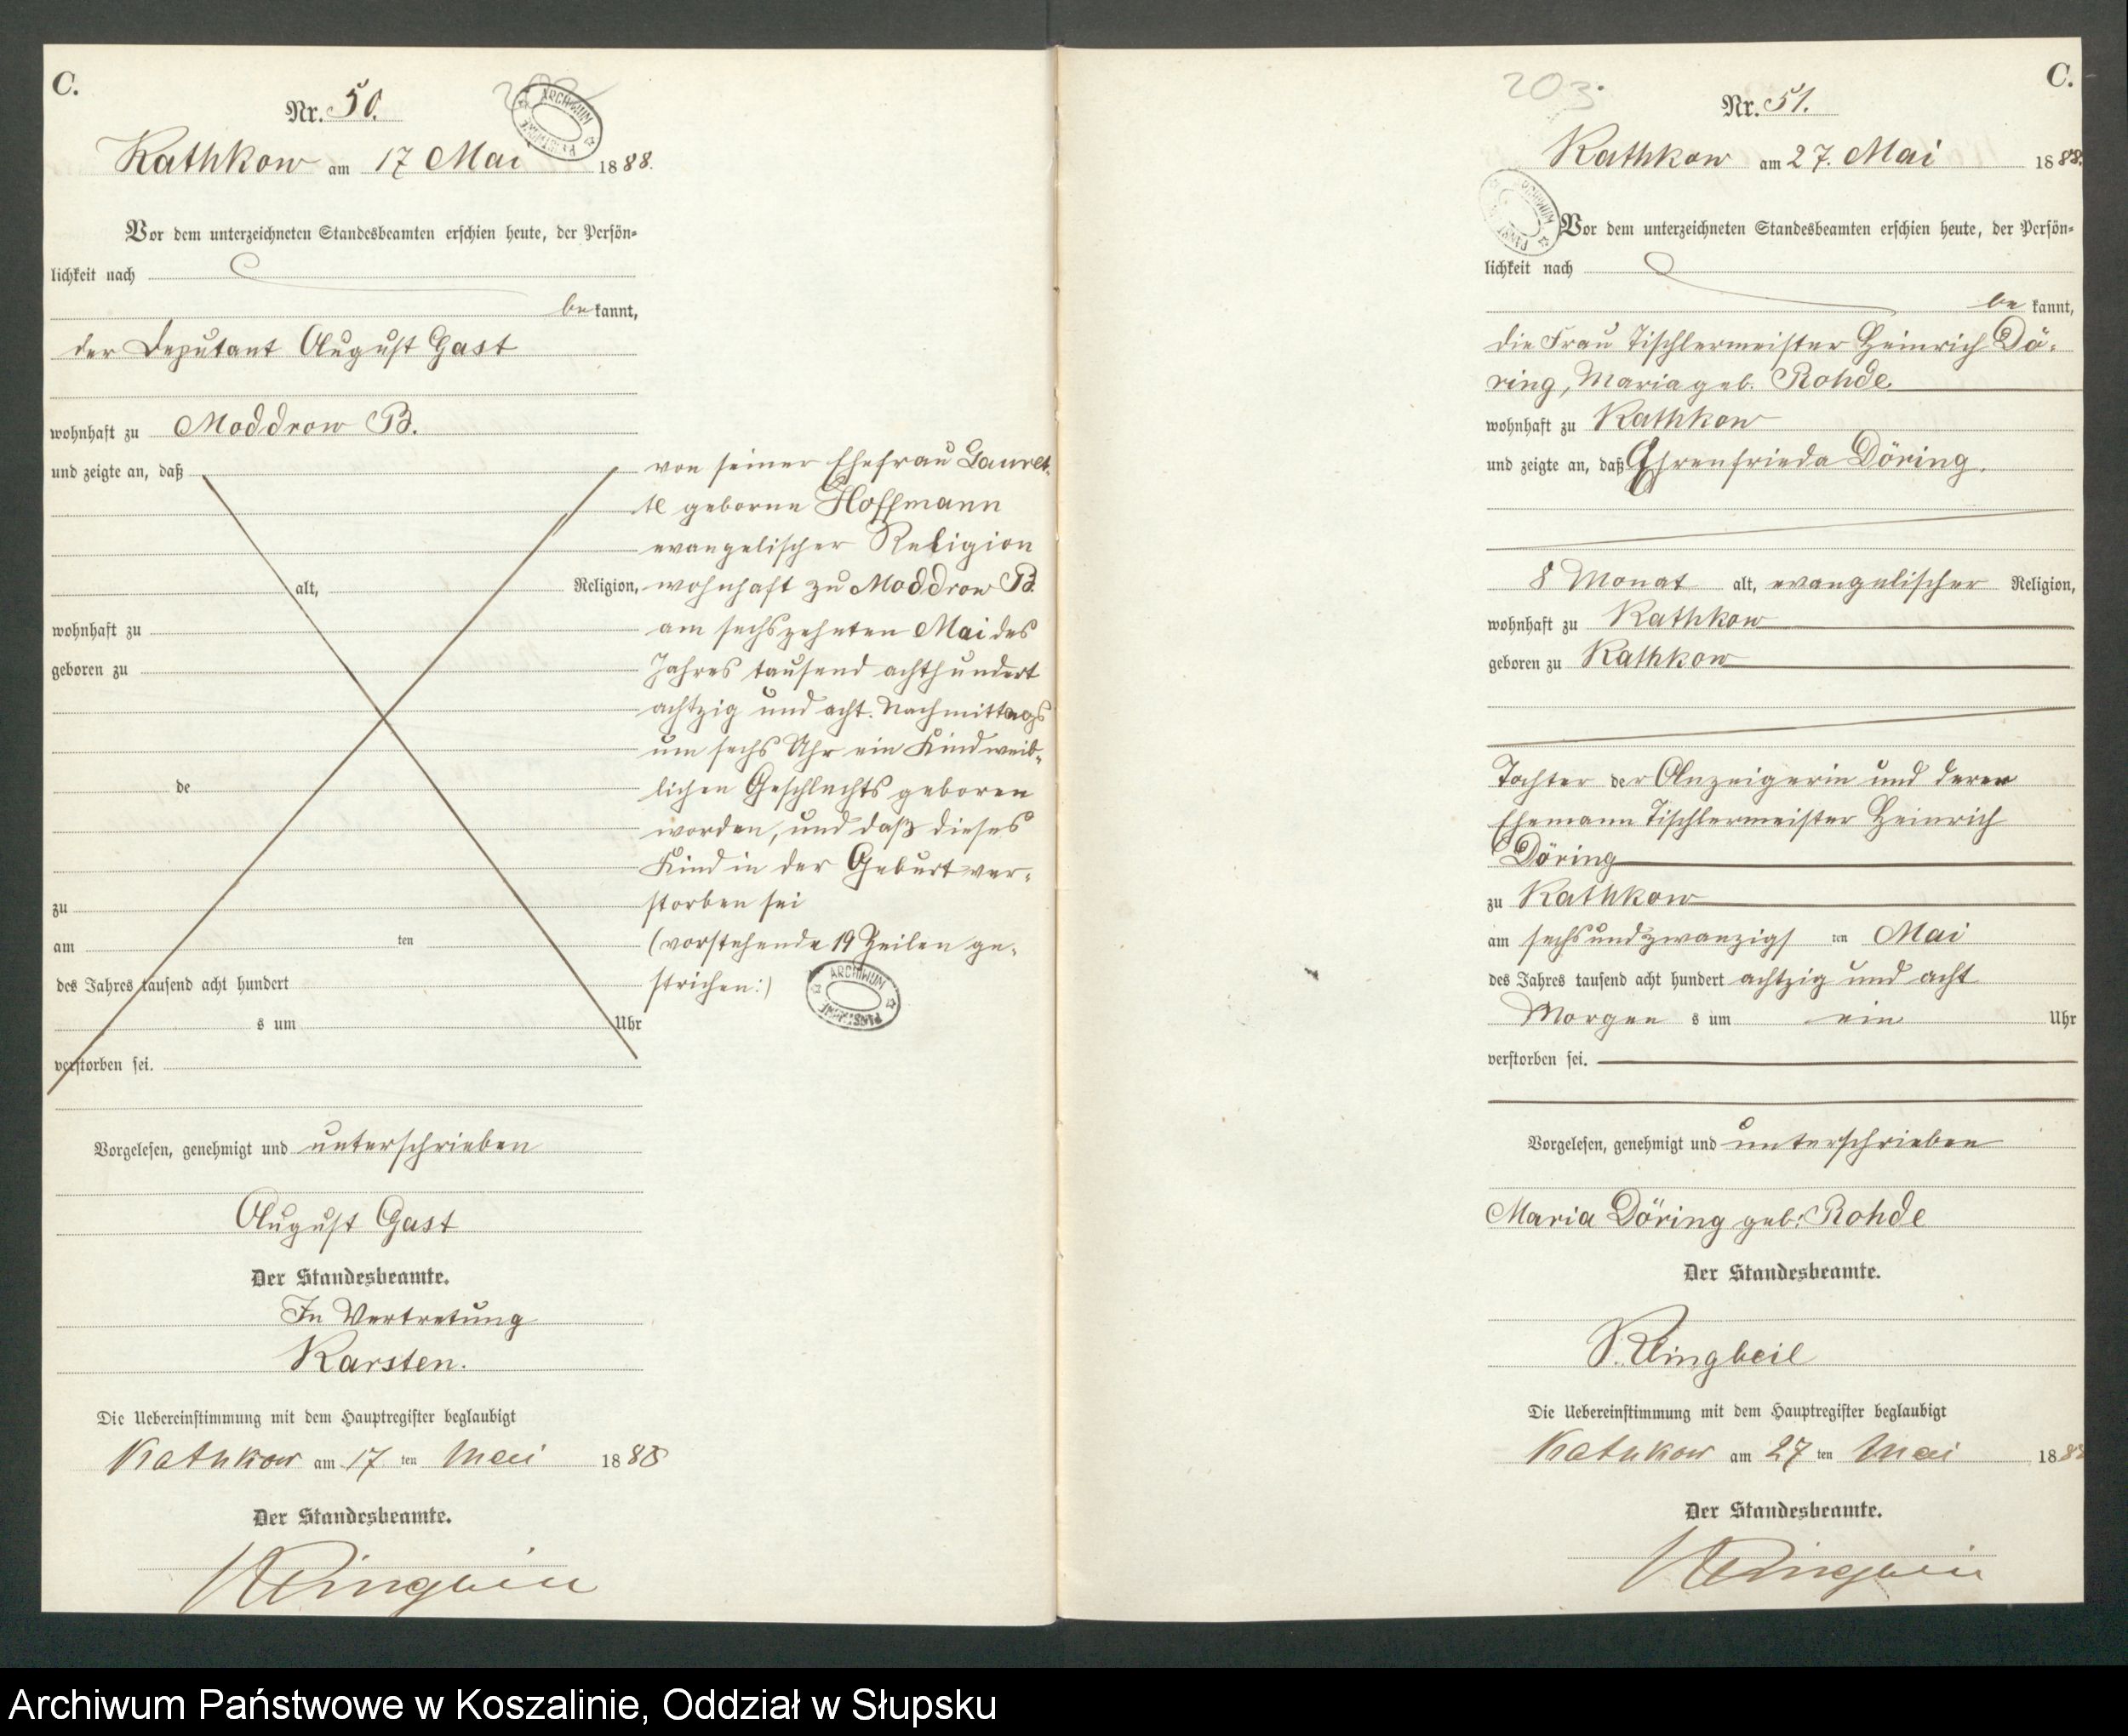 C.
Nr. 50.
Kathkow am 17 Mai 1888.
Vor dem unterzeichneten Standesbeamten erschien heute, der Persön-
lichkeit nach
bekannt,
der Deputant August Gast
wohnhaft zu Moddrow B.
und zeigte an, daß
alt, Religion,
wohnhaft zu
geboren zu
de
zu
am ten
des Jahres tausend acht hundert
s um Uhr
verstorben sei.
von seiner Ehefrau Lauret-
te geborne Hoffmann
evangelischer Religion
wohnhaft zu Moddrow B.
am sechszehnten Mai des
Jahres tausend achthundert
achtzig und acht. Nachmittags
um sechs Uhr ein Kind weib-
lichen Geschlechts geboren
worden, und daß dieses
Kind in der Geburt ver-
storben sei
(vorstehende 19 Zeilen ge-
strichen:)
ARCHIWUM
Vorgelesen, genehmigt und unterschrieben
August Gast
Der Standesbeamte.
In Vertretung
Karsten.
Die Uebereinstimmung mit dem Hauptregister beglaubigt
Kathkow am 17 ten Mai 1888
Der Standesbeamte.
Klingbeil
C.
203.
Nr. 51.
Kathkow am 27. Mai 1888.
Vor dem unterzeichneten Standesbeamten erschien heute, der Persön-
lichkeit nach
bekannt,
die Frau Tischlermeister Heinrich Dö-
ring, Maria geb. Rohde
wohnhaft zu Kathkow
und zeigte an, daß Ehrenfrieda Döring.
8 Monat alt, evangelischer Religion,
wohnhaft zu Kathkow
geboren zu Kathkow
Tochter der Anzeigerin und deren
Ehemann Tischlermeister Heinrich
Döring
zu Kathkow
am sechsundzwanzigs ten Mai
des Jahres tausend acht hundert achtzig und acht
Morgen s um ein Uhr
verstorben sei.
Vorgelesen, genehmigt und unterschrieben
Maria Döring geb: Rohde
Der Standesbeamte.
Klingbeil
Die Uebereinstimmung mit dem Hauptregister beglaubigt
Kathkow am 27 ten Mai 188
Der Standesbeamte.
Klingbeil
Archiwum Państwowe w Koszalinie, Oddział w Słupsku